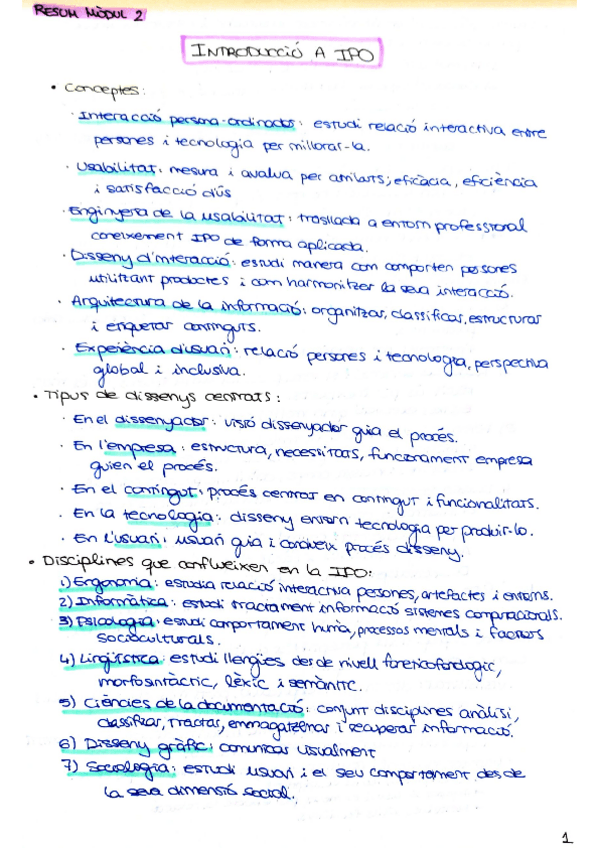 RESUM MÒDUL 2
INTRODUCCIÓ A IPO
• Conceptes:
· Interacció persona-ordinador: estudi relació interactiva entre
persones i tecnologia per millorar-la.
· Usabilitat: mesura i avalua per atributs; eficàcia, eficiència
i satisfacció d'ús
· Enginyeria de la usabilitat: trasllada a entorn professional
coneixement IPO de forma aplicada.
· Disseny d'interacció: estudi manera com comporten persones
utilitzant productes i com harmonitzar la seva interacció.
· Arquitectura de la informació: organitzar, classificar, estructurar
i etiquetar continguts.
· Experiència d'usuari: relació persones i tecnologia, perspectiva
global i inclusiva.
• Tipus de dissenys centrats:
· En el dissenyador: visió dissenyador guia el procés.
· En l'empresa: estructura, necessitats, funcionament empresa
guien el procés.
· En el contingut: procés centrat en contingut i funcionalitats.
· En la tecnologia: disseny entorn tecnologia per produir-lo.
· En l'usuari: usuari guia i condueix procés disseny.
• Disciplines que conflueixen en la IPO:
1) Ergonomia: estudia relació interactiva persones, artefactes i entorns.
2) Informàtica: estudi tractament informació sistemes computacionals.
3) Psicologia: estudi comportament humà, processos mentals i factors
socioculturals.
4) Lingüística: estudi llengües des de nivell foneticofonològic,
morfosintàctic, lèxic i semàntic.
5) Ciències de la documentació: conjunt disciplines anàlisi,
classificar, tractar, emmagatzemar i recuperar informació.
6) Disseny gràfic: comunicar visualment
7) Sociologia: estudi usuari i el seu comportament des de
la seva dimensió social.
1